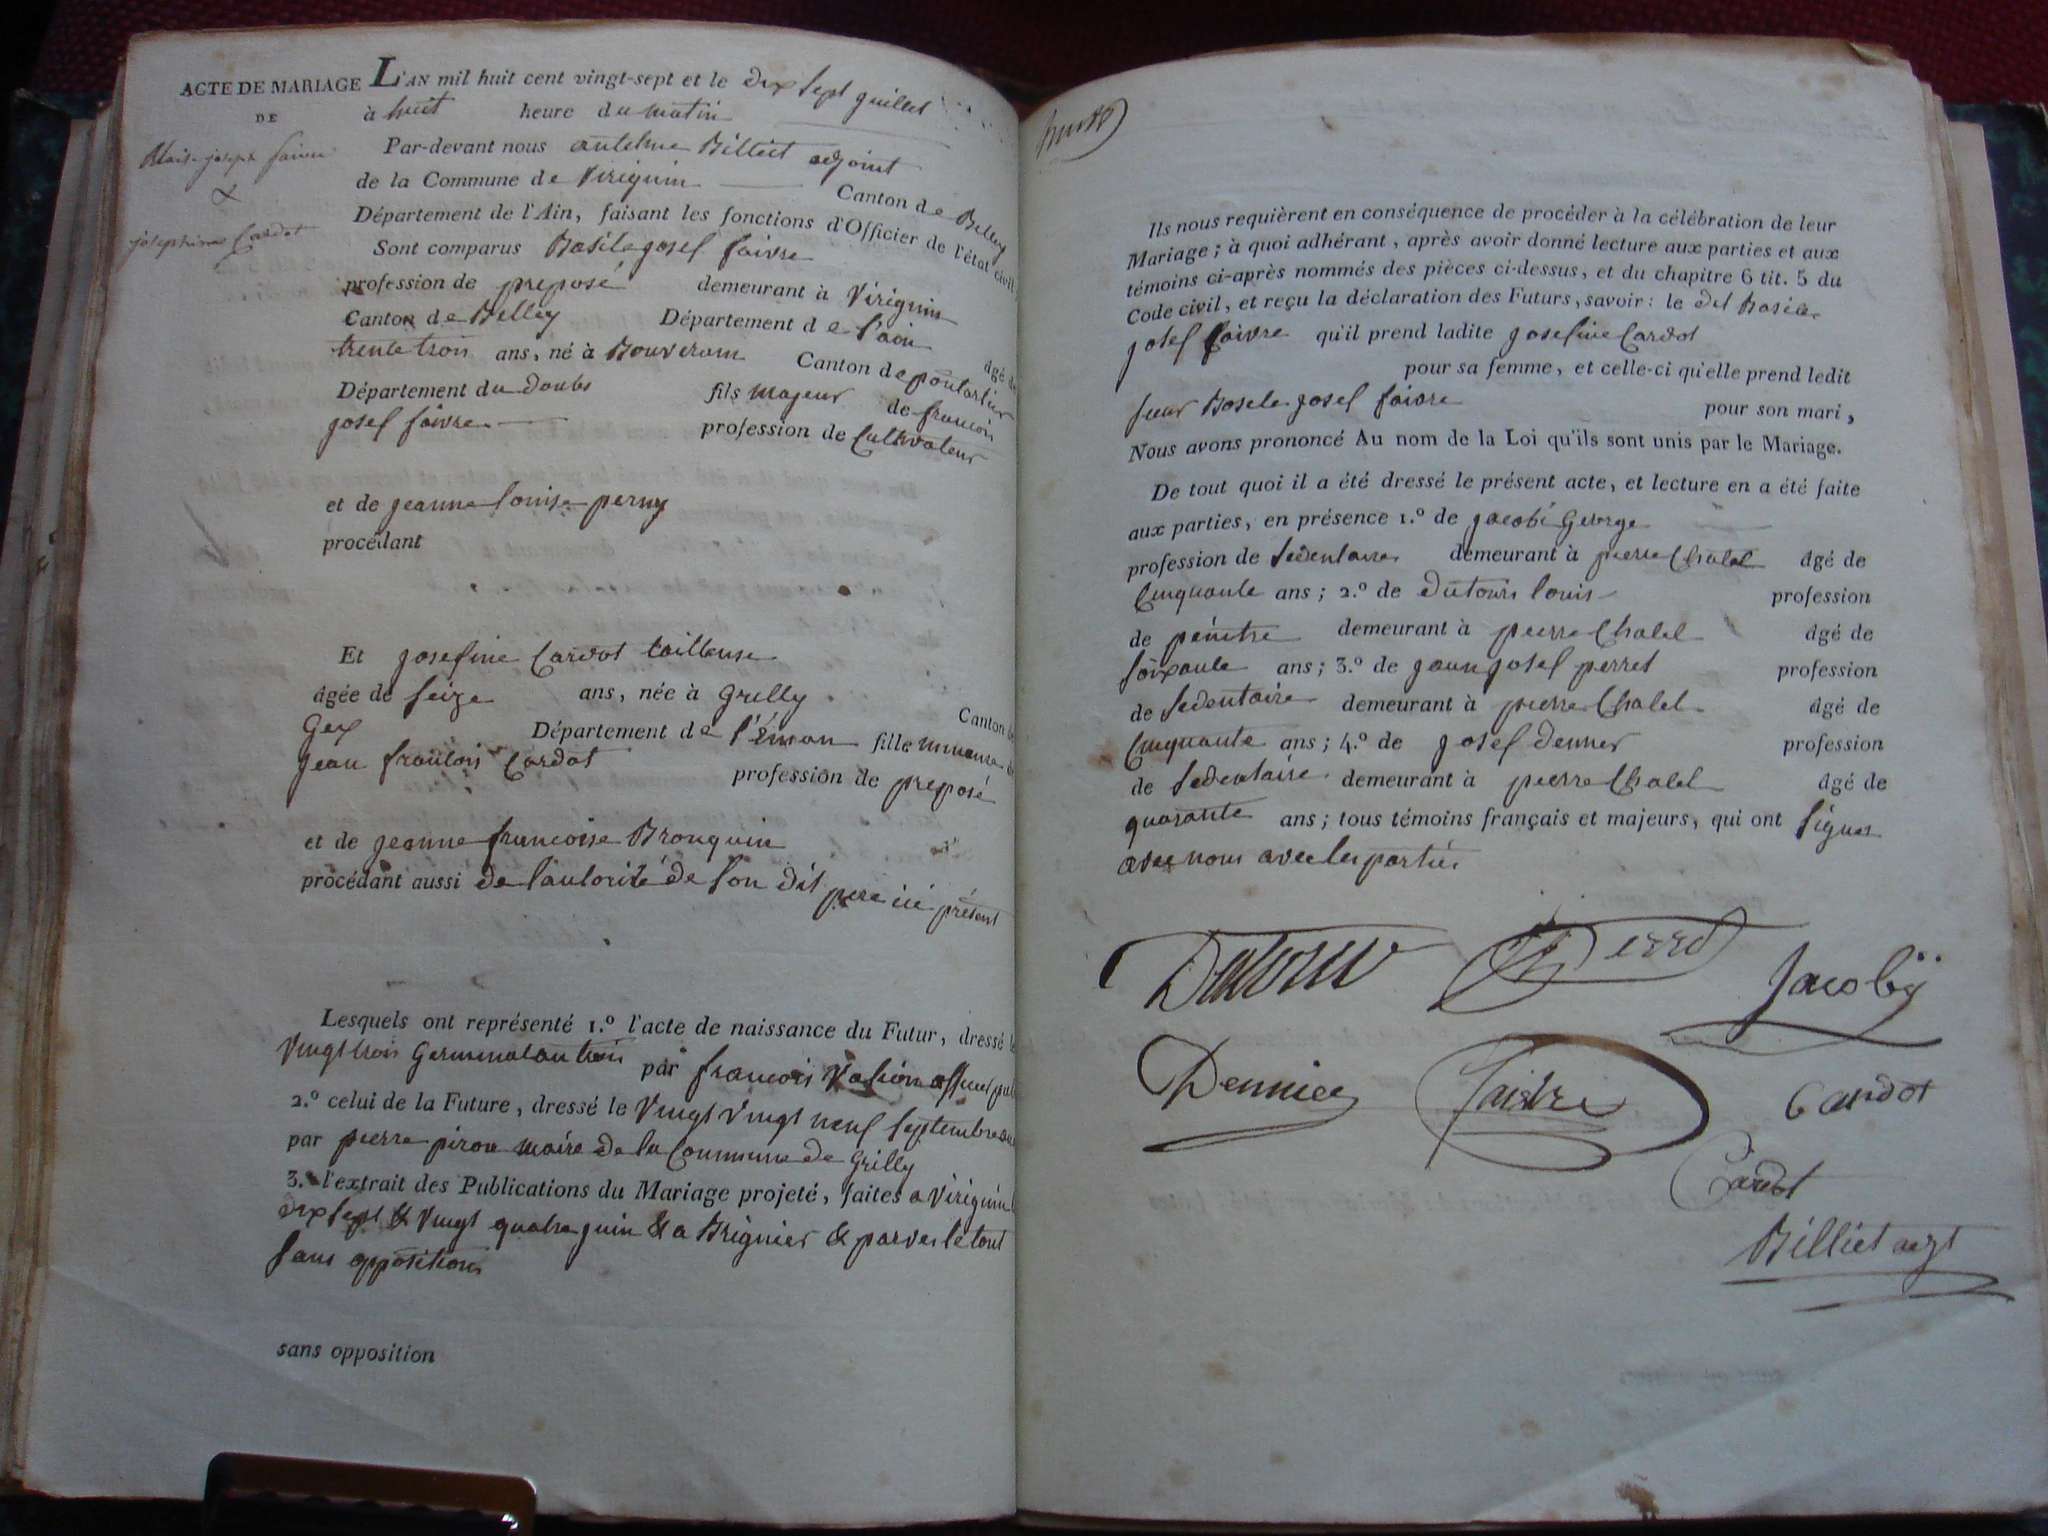 ACTE DE MARIAGE
DE
joseph faivre
&
josephine Cardot
L'AN mil huit cent vingt-sept et le dix sept juillet
à huit heure du matin
Par-devant nous antelme Billiet adjoint
de la Commune de Virignin Canton de Belley
Département de l'Ain, faisant les fonctions d'Officier de l'état civil,
Sont comparus Basile josef faivre
profession de preposé demeurant à Virignin
Canton de Belley Département de l'ain âgé de
trente trois ans, né à Bouverans Canton de pontarlier
Département du doubs fils majeur de francois
josef faivre profession de Cultivateur
et de jeanne louise perny
procédant
Et josefine Cardot tailleuse
âgée de seize ans, née à Grilly Canton de
Gex Département de l'éman fille mineure de
jean francois Cardot profession de preposé
et de jeanne francoise Bronquin
procédant aussi de l'autorité de son dit pere ici présent
Lesquels ont représenté 1.º l'acte de naissance du Futur, dressé le
Vingt trois Germinal an trois par francois
2.º celui de la Future, dressé le Vingt Vingt neuf septembre
par pierre piron maire de la Commune de Grilly
3.º l'extrait des Publications du Mariage projeté, faites a Virignin
dix sept & Vingt quatre juin & a Brignier & parves le tout
sans oppositions
sans opposition
Ils nous requièrent en conséquence de procéder à la célébration de leur
Mariage; à quoi adhérant, après avoir donné lecture aux parties et aux
témoins ci-après nommés des pièces ci-dessus, et du chapitre 6 tit. 5 du
Code civil, et reçu la déclaration des Futurs, savoir: le dit Basile
josef faivre qu'il prend ladite josefine Cardot
pour sa femme, et celle-ci qu'elle prend ledit
sieur Basile josef faivre pour son mari,
Nous avons prononcé Au nom de la Loi qu'ils sont unis par le Mariage.
De tout quoi il a été dressé le présent acte, et lecture en a été faite
aux parties, en présence 1.º de jacobi George
profession de sedentaire demeurant à pierre Chatel âgé de
Cinquante ans; 2.º de dutouri louis profession
de peintre demeurant à pierre Chatel âgé de
soixante ans; 3.º de jean josef perret profession
de sedentaire demeurant à pierre Chatel âgé de
Cinquante ans; 4.º de josef denner profession
de sedentaire demeurant à pierre Chatel âgé de
quarante ans; tous témoins français et majeurs, qui ont signer
avec nous avec les parties
Jacobÿ
faivre Cardot
Cardot
Billiet